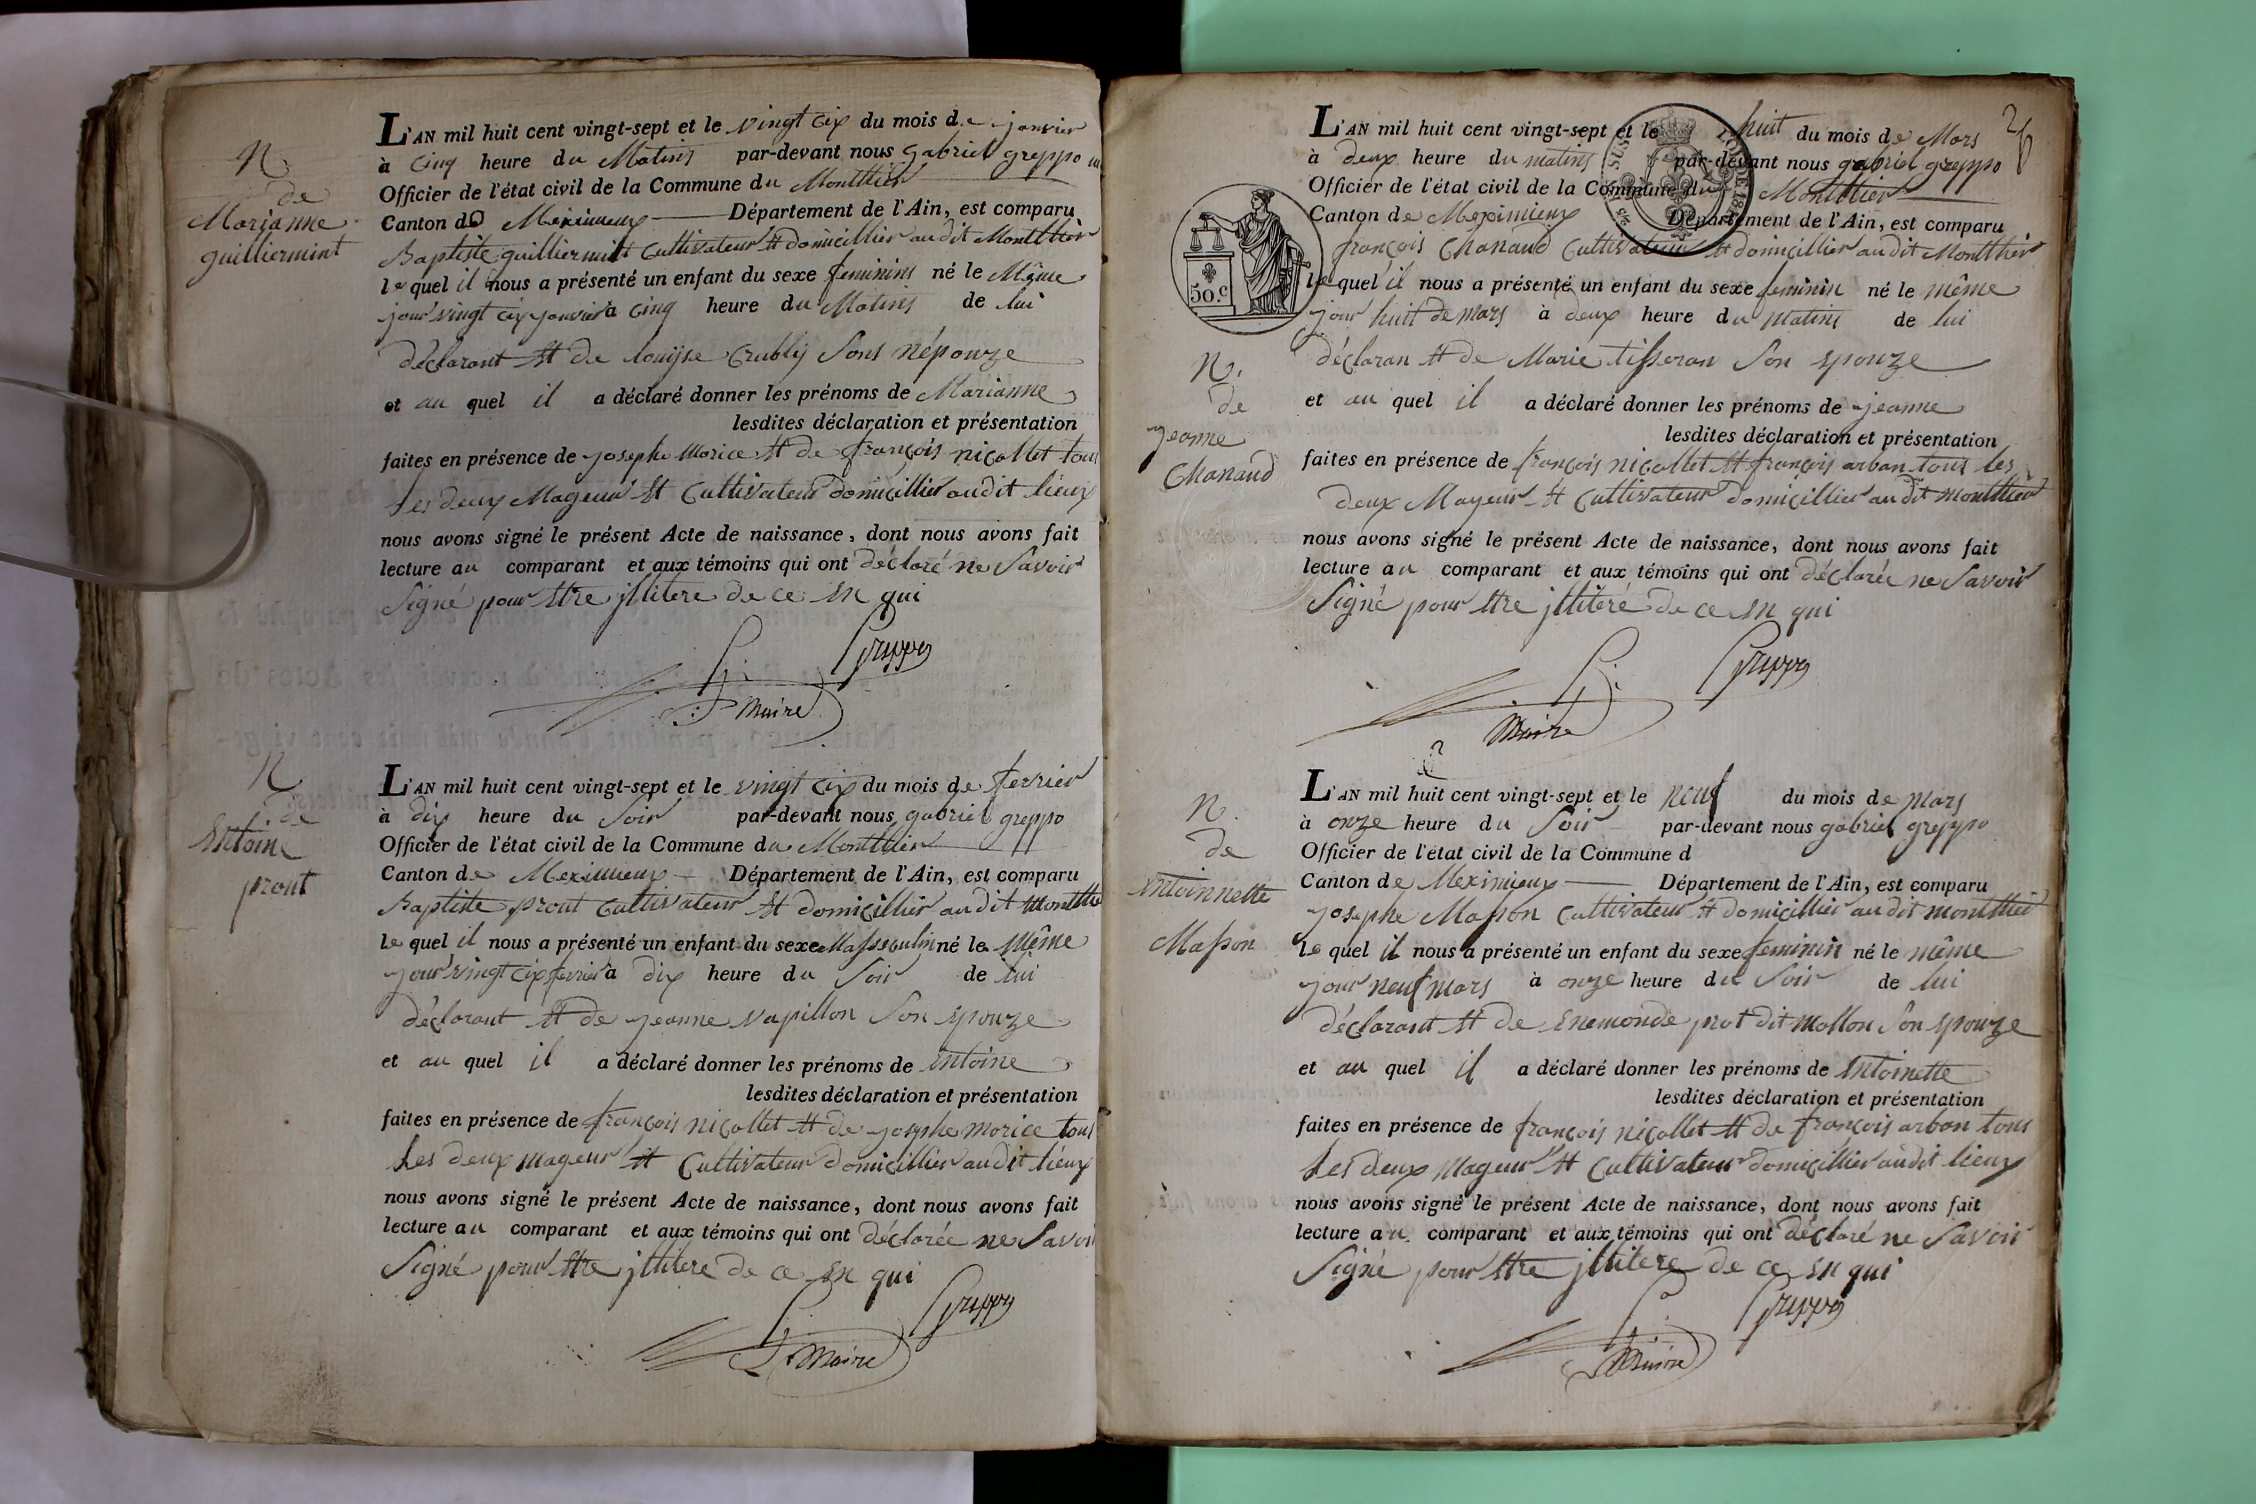 N.
de
Marianne
guilliermint
L'AN mil huit cent vingt-sept et le vingt cix du mois de janvier
à cinq heure du Matins par-devant nous gabriel greppo
Officier de l'état civil de la Commune du Montthier
Canton de Meximieux Département de l'Ain, est comparu
Baptiste guilliermint Cultivateur Et domicillier au dit Montthier
le quel il nous a présenté un enfant du sexe feminins né le Même
jour vingt cix janvier à cinq heure du Matins de lui
déclarant Et de louise Crubly Sons népouze
et au quel il a déclaré donner les prénoms de Marianne
lesdites déclaration et présentation
faites en présence de josephe Morice Et de françois nicollet tous
Les deux Mageur Et Cultivateur domicillier au dit lieux
nous avons signé le présent Acte de naissance, dont nous avons fait
lecture au comparant et aux témoins qui ont déclaré ne Savoir
Signé pour Etre jllitere de ce En qui
G. Greppo
Maire
N
de
Entoine
prout
L'AN mil huit cent vingt-sept et le vingt cix du mois de fevrier
à dix heure du Soir par-devant nous gabriel greppo
Officier de l'état civil de la Commune du Montthier
Canton de Meximieux Département de l'Ain, est comparu
Baptiste prout Cultivateur Et domicillier au dit Montthier
le quel il nous a présenté un enfant du sexe Masseculin né le Même
jour vingt cix fevrier à dix heure du Soir de lui
déclarant Et de jeanne vapillon Son Epouze
et au quel il a déclaré donner les prénoms de Entoine
lesdites déclaration et présentation
faites en présence de françois nicollet Et de josephe morice tous
Les deux mageur Et Cultivateur domicillier au dit lieux
nous avons signé le présent Acte de naissance, dont nous avons fait
lecture au comparant et aux témoins qui ont déclarée ne Savoir
Signé pour Etre jllitere de ce En qui
G. Greppo
Maire
26
50 c
N.
de
jeanne
Chanaud
L'AN mil huit cent vingt-sept et le huit du mois de Mars
à deux heure du matins par-devant nous gabriel greppo
Officier de l'état civil de la Commune du Montthier
Canton de Meximieux Département de l'Ain, est comparu
françois Chanaud Cultivateur Et domicillier au dit Montthier
le quel il nous a présenté un enfant du sexe feminin né le même
jour huit de mars à deux heure du matins de lui
déclaran Et de Marie tisseran Son Epouze
et au quel il a déclaré donner les prénoms de jeanne
lesdites déclaration et présentation
faites en présence de françois nicollet Et françois arban tous les
deux Mayeur Et Cultivateur domicillier au dit montthier
nous avons signé le présent Acte de naissance, dont nous avons fait
lecture au comparant et aux témoins qui ont déclarée ne Savoir
Signé pour Etre jlliteré de ce En qui
G. Greppo
Maire
N.
de
Entoinnette
Masson
L'AN mil huit cent vingt-sept et le neuf du mois de mars
à onze heure du Soir par-devant nous gabriel greppo
Officier de l'état civil de la Commune d
Canton de Meximieux Département de l'Ain, est comparu
josephe Masson Cultivateur Et domicillier au dit montthier
le quel il nous a présenté un enfant du sexe feminin né le même
jour neuf mars à onze heure du Soir de lui
déclarant Et de Enemonde prot dit mollon Son Epouze
et au quel il a déclaré donner les prénoms de Entoinette
lesdites déclaration et présentation
faites en présence de françois nicollet Et de françois arban tous
Les deux Mageur Et Cultivateur domicillier au dit lieux
nous avons signé le présent Acte de naissance, dont nous avons fait
lecture au comparant et aux témoins qui ont déclaré ne Savoir
Signé pour Etre jllitere de ce En qui
G. Greppo
Maire